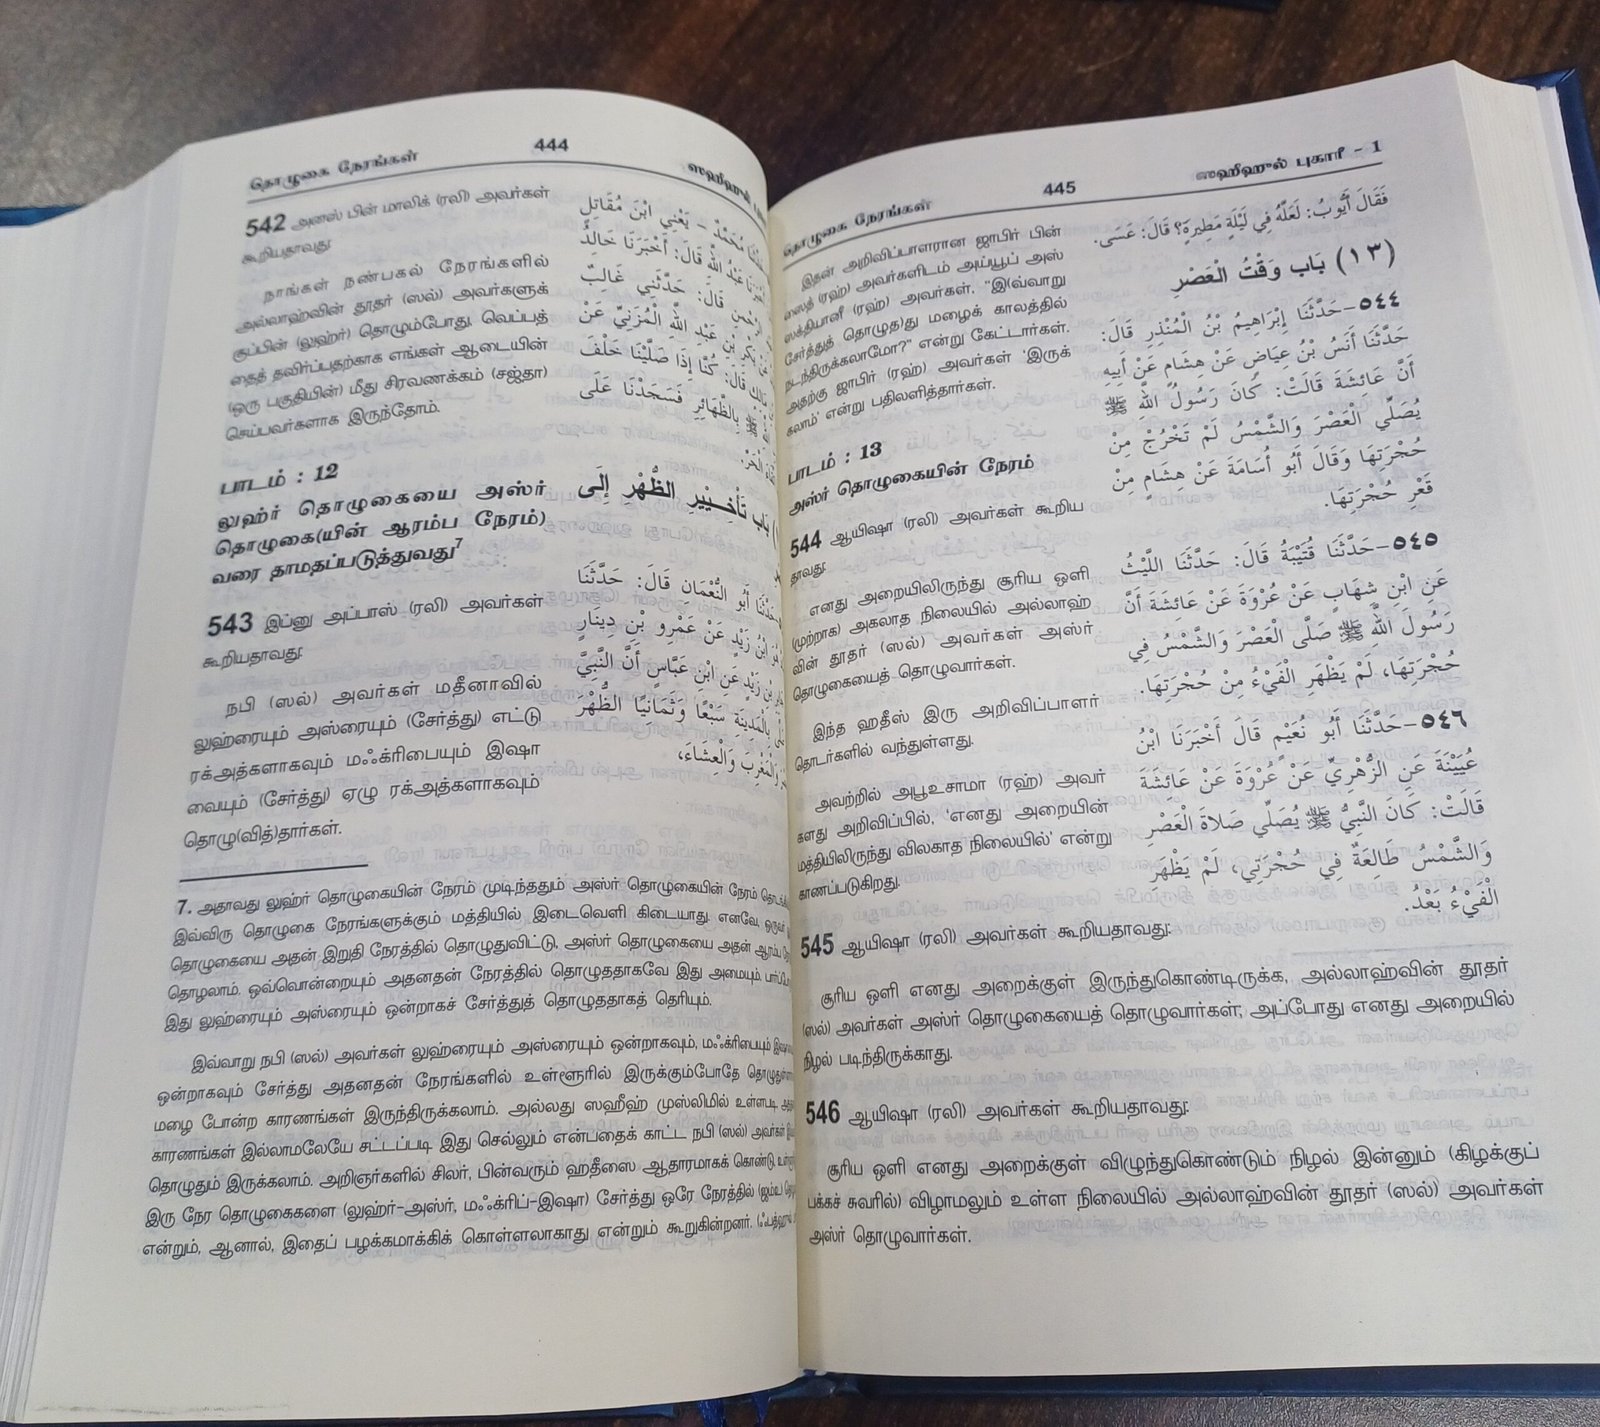 தொழுகை நேரங்கள்
444
ஸஹீஹுல்
542 அனஸ் பின் மாலிக் (ரலி) அவர்கள்
கூறியதாவது:
நாங்கள் நண்பகல் நேரங்களில்
அல்லாஹ்வின் தூதர் (ஸல்) அவர்களுக்
குப்பின் (லுஹ்ர்) தொழும்போது, வெப்பத்
தைத் தவிர்ப்பதற்காக எங்கள் ஆடையின்
(ஒரு பகுதியின்) மீது சிரவணக்கம் (சஜ்தா)
செய்பவர்களாக இருந்தோம்.
பாடம் : 12
லுஹ்ர் தொழுகையை அஸ்ர்
தொழுகை(யின் ஆரம்ப நேரம்)
வரை தாமதப்படுத்துவது7
543 இப்னு அப்பாஸ் (ரலி) அவர்கள்
கூறியதாவது:
நபி (ஸல்) அவர்கள் மதீனாவில்
லுஹ்ரையும் அஸ்ரையும் (சேர்த்து) எட்டு
ரக்அத்களாகவும் மஃக்ரிபையும் இஷா
வையும் (சேர்த்து) ஏழு ரக்அத்களாகவும்
தொழு(வித்)தார்கள்.
مُحَمَّدٌ - يَعْنِي ابْنَ مُقَاتِلٍ
عَبْدُ اللَّهِ قَالَ: أَخْبَرَنَا خَالِدُ
قَالَ: حَدَّثَنِي غَالِبٌ
بَكْرِ بْنِ عَبْدِ اللَّهِ الْمُزَنِيِّ عَنْ
قَالَ: كُنَّا إِذَا صَلَّيْنَا خَلْفَ
بِالظَّهَائِرِ فَسَجَدْنَا عَلَى
الْحَرِّ.
بَاب تَأْخِيْيرِ الظُّهْرِ إِلَى
حَدَّثَنَا أَبُو النُّعْمَانِ قَالَ: حَدَّثَنَا
ابْنُ زَيْدٍ عَنْ عَمْرِو بْنِ دِينَارٍ
بْنِ زَيْدٍ عَنِ ابْنِ عَبَّاسٍ أَنَّ النَّبِيَّ
بِالْمَدِينَةِ سَبْعًا وَثَمَانِيًا الظُّهْرَ
وَالْمَغْرِبَ وَالْعِشَاءَ،
7. அதாவது லுஹ்ர் தொழுகையின் நேரம் முடிந்ததும் அஸ்ர் தொழுகையின் நேரம்
இவ்விரு தொழுகை நேரங்களுக்கும் மத்தியில் இடைவெளி கிடையாது. எனவே, ஒருவர்
தொழுகையை அதன் இறுதி நேரத்தில் தொழுதுவிட்டு, அஸ்ர் தொழுகையை அதன் ஆரம்ப
தொழலாம். ஒவ்வொன்றையும் அதனதன் நேரத்தில் தொழுததாகவே இது அமையும்.
இது லுஹ்ரையும் அஸ்ரையும் ஒன்றாகச் சேர்த்துத் தொழுததாகத் தெரியும்.
இவ்வாறு நபி (ஸல்) அவர்கள் லுஹ்ரையும் அஸ்ரையும் ஒன்றாகவும், மஃக்ரிபையும்
ஒன்றாகவும் சேர்த்து அதனதன் நேரங்களில் உள்ளூரில் இருக்கும்போதே
மழை போன்ற காரணங்கள் இருந்திருக்கலாம். அல்லது ஸஹீஹ் முஸ்லிமில் உள்ளபடி
காரணங்கள் இல்லாமலேயே சட்டப்படி இது செல்லும் என்பதைக் காட்ட நபி (ஸல்) அவர்கள்
தொழுதும் இருக்கலாம். அறிஞர்களில் சிலர், பின்வரும் ஹதீஸை ஆதாரமாகக் கொண்டு,
இரு நேர தொழுகைகளை (லுஹ்ர்-அஸ்ர், மஃக்ரிப்-இஷா) சேர்த்து ஒரே நேரத்தில்
என்றும், ஆனால், இதைப் பழக்கமாக்கிக் கொள்ளலாகாது என்றும் கூறுகின்றனர்.
தொழுகை நேரங்கள்
445
ஸஹீஹுல் புகாரீ - 1
இதன் அறிவிப்பாளரான ஜாபிர் பின்
ஸைத் (ரஹ்) அவர்களிடம் அய்யூப் அஸ்
ஸக்தியானீ (ரஹ்) அவர்கள், "இ(வ்வாறு
சேர்த்துத் தொழுத)து மழைக் காலத்தில்
நடந்திருக்கலாமோ?" என்று கேட்டார்கள்.
அதற்கு ஜாபிர் (ரஹ்) அவர்கள் 'இருக்
கலாம்' என்று பதிலளித்தார்கள்.
பாடம் : 13
அஸ்ர் தொழுகையின் நேரம்
544 ஆயிஷா (ரலி) அவர்கள் கூறிய
தாவது:
எனது அறையிலிருந்து சூரிய ஒளி
(முற்றாக) அகலாத நிலையில் அல்லாஹ்
வின் தூதர் (ஸல்) அவர்கள் அஸ்ர்
தொழுகையைத் தொழுவார்கள்.
இந்த ஹதீஸ் இரு அறிவிப்பாளர்
தொடர்களில் வந்துள்ளது.
அவற்றில் அபூஉசாமா (ரஹ்) அவர்
களது அறிவிப்பில், 'எனது அறையின்
மத்தியிலிருந்து விலகாத நிலையில்' என்று
காணப்படுகிறது.
فَقَالَ أَيُّوبُ: لَعَلَّهُ فِي لَيْلَةٍ مَطِيرَةٍ؟ قَالَ: عَسَى.
(١٣) بَاب وَقْتُ الْعَصْرِ
٥٤٤-حَدَّثَنَا إِبْرَاهِيمُ بْنُ الْمُنْذِرِ قَالَ:
حَدَّثَنَا أَنَسُ بْنُ عِيَاضٍ عَنْ هِشَامٍ عَنْ أَبِيهِ
أَنَّ عَائِشَةَ قَالَتْ: كَانَ رَسُولُ اللَّهِ ﷺ
يُصَلِّي الْعَصْرَ وَالشَّمْسُ لَمْ تَخْرُجْ مِنْ
حُجْرَتِهَا وَقَالَ أَبُو أُسَامَةَ عَنْ هِشَامٍ مِنْ
قَعْرِ حُجْرَتِهَا.
٥٤٥-حَدَّثَنَا قُتَيْبَةُ قَالَ: حَدَّثَنَا اللَّيْثُ
عَنِ ابْنِ شِهَابٍ عَنْ عُرْوَةَ عَنْ عَائِشَةَ أَنَّ
رَسُولَ اللَّهِ ﷺ صَلَّى الْعَصْرَ وَالشَّمْسُ فِي
حُجْرَتِهَا، لَمْ يَظْهَرِ الْفَيْءُ مِنْ حُجْرَتِهَا.
٥٤٦-حَدَّثَنَا أَبُو نُعَيْمٍ قَالَ أَخْبَرَنَا ابْنُ
عُيَيْنَةَ عَنِ الزُّهْرِيِّ عَنْ عُرْوَةَ عَنْ عَائِشَةَ
قَالَتْ: كَانَ النَّبِيُّ ﷺ يُصَلِّي صَلَاةَ الْعَصْرِ
وَالشَّمْسُ طَالِعَةٌ فِي حُجْرَتِي، لَمْ يَظْهَرِ
الْفَيْءُ بَعْدُ.
545 ஆயிஷா (ரலி) அவர்கள் கூறியதாவது:
சூரிய ஒளி எனது அறைக்குள் இருந்துகொண்டிருக்க, அல்லாஹ்வின் தூதர்
(ஸல்) அவர்கள் அஸ்ர் தொழுகையைத் தொழுவார்கள்; அப்போது எனது அறையில்
நிழல் படிந்திருக்காது.
546 ஆயிஷா (ரலி) அவர்கள் கூறியதாவது:
சூரிய ஒளி எனது அறைக்குள் விழுந்துகொண்டும் நிழல் இன்னும் (கிழக்குப்
பக்கச் சுவரில்) விழாமலும் உள்ள நிலையில் அல்லாஹ்வின் தூதர் (ஸல்) அவர்கள்
அஸ்ர் தொழுவார்கள்.